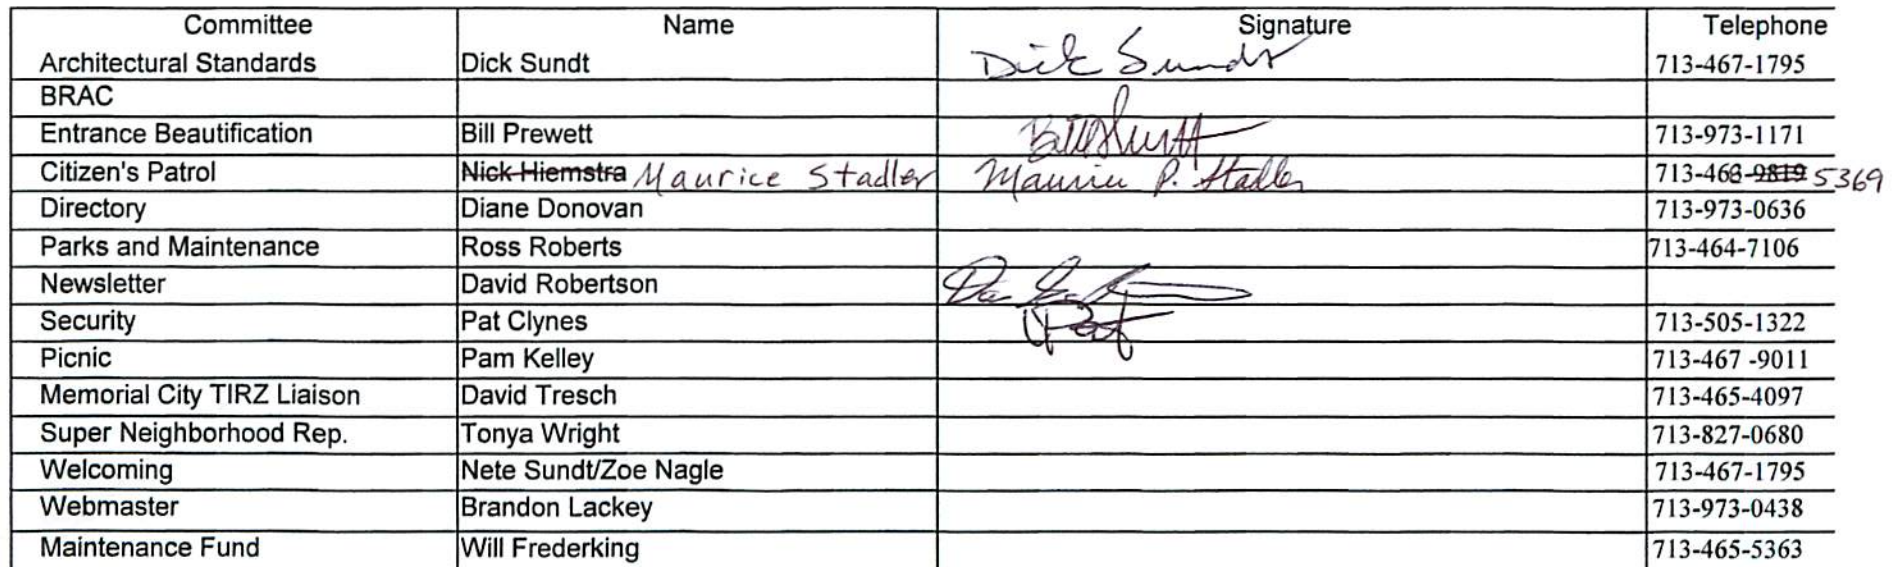 Committee Name Signature Telephone
Architectural Standards Dick Sundt Dick Sundt 713-467-1795
BRAC
Entrance Beautification Bill Prewett Bill Prewett 713-973-1171
Citizen's Patrol Nick Hiemstra Maurice Stadler Maurice P. Stadler 713-466-9819 5369
Directory Diane Donovan 713-973-0636
Parks and Maintenance Ross Roberts 713-464-7106
Newsletter David Robertson
Security Pat Clynes Pat 713-505-1322
Picnic Pam Kelley 713-467 -9011
Memorial City TIRZ Liaison David Tresch 713-465-4097
Super Neighborhood Rep. Tonya Wright 713-827-0680
Welcoming Nete Sundt/Zoe Nagle 713-467-1795
Webmaster Brandon Lackey 713-973-0438
Maintenance Fund Will Frederking 713-465-5363